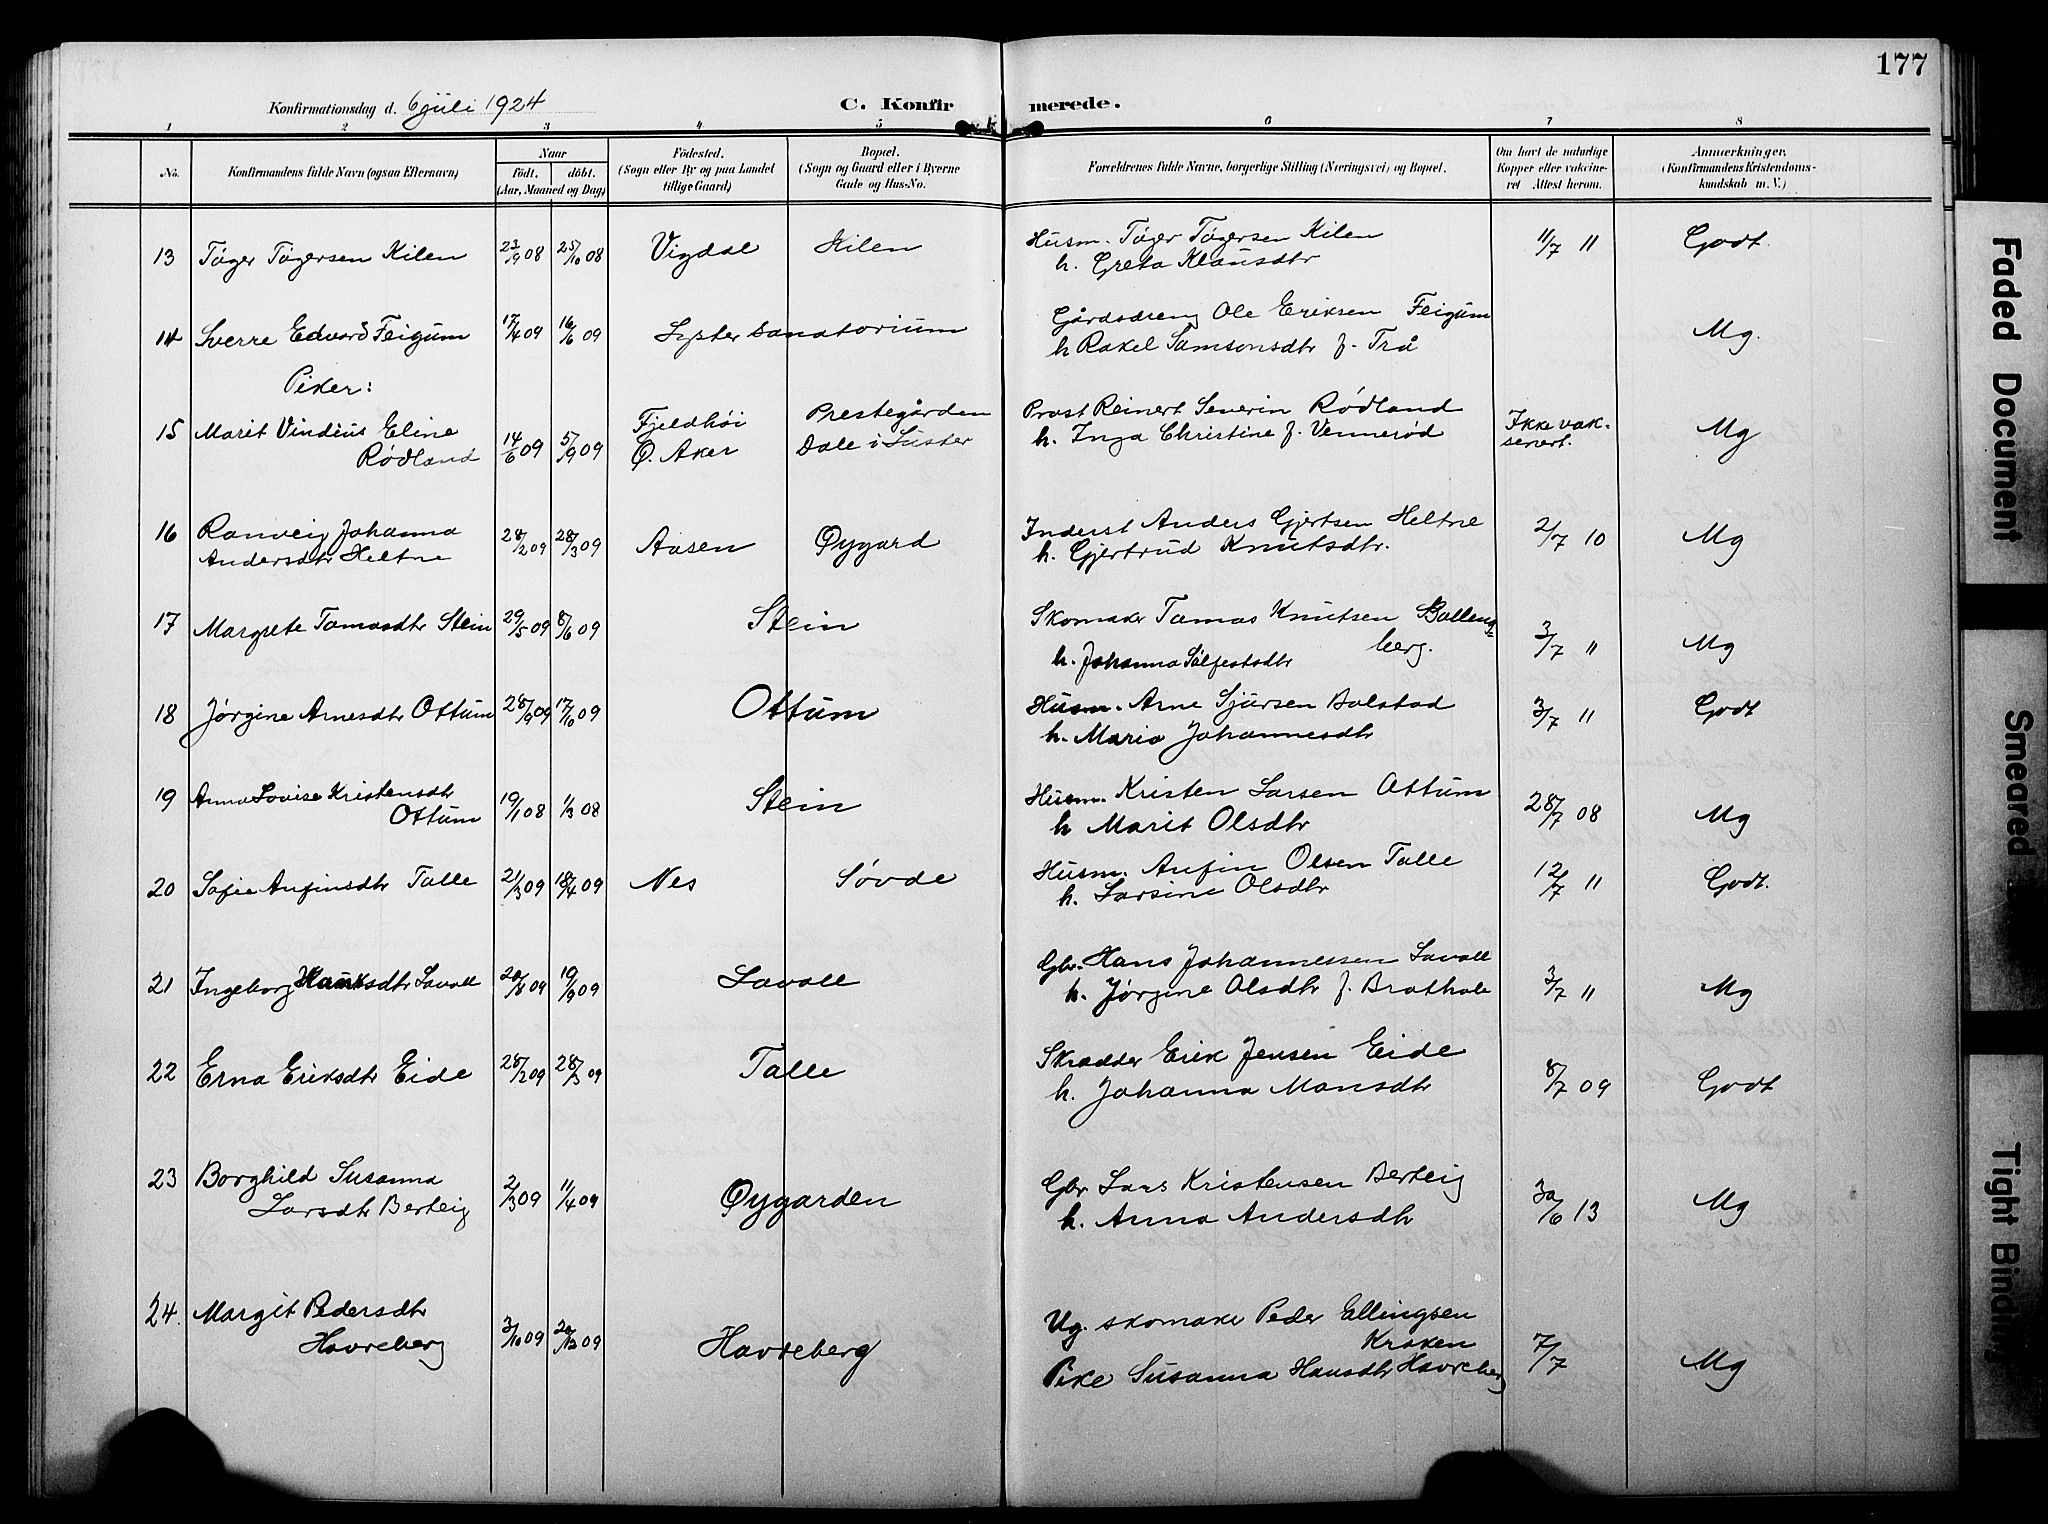 177
Konfirmationsdag d. 6 juli 1924 C. Konfirmerede.
1 2 3 4 5 6 7 8
No. Konfirmandens fulde Navn (ogsaa Efternavn) Naar født. døbt. (Aar, Maaned og Dag) Fødested. (Sogn eller By og paa Landet tillige Gaard) Bopæl. (Sogn og Gaard eller i Byerne Gade og Hus-No. Forældrenes fulde Navne, borgerlige Stilling (Næringsvei) og Bopæl. Om havt de naturlige Kopper eller vakcineret Attest herom. Anmærkninger, (Konfirmandens Kristendomskundskab m. V.)
13 Tøger Tøgersen Kilen 23/9 08 25/10 08 Vigdal Kilen Husm. Tøger Tøgersen Kilen 11/7 11 Godt.
h. Greta Klausdtr
14 Sverre Edvard Feigum 17/4 09 16/6 09 Lyster sanatorium Gårdsdreng Ole Eriksen Feigum Mg.
h Rakel Samsonsdtr f. Trå
Piker:
15 Marit Vindius Eline Fjeldhøi Prestegården Prost Reinert Severin Rødland Ikke vak-
Rødland 14/6 09 5/9 09 Ø. Aker Dale i Luster h. Inga Christine f. Vennerød senert. Mg
16 Ranveig Johanna Inderst Anders Gjertsen Heltne
Andersdtr Heltne 28/2 09 28/3 09 Aasen Øygard h. Gjertrud Knutsdtr. 2/7 10 Mg
17 Margrete Tomasdtr Stein 29/5 09 8/6 09 Stein Skomaker Tomas Knutsen Bolleng-
berg.
h. Johanna Sølfestsdtr 3/7 " Mg
18 Jørgine Arnesdtr Ottum 28/9 09 17/10 09 Ottum Husm. Arne Sjursen Bolstad 3/7 " Godt
h. Maria Johannesdtr
19 Anna Lovise Kristensdtr Husm. Kristen Larsen Ottum
Ottum 19/1 08 1/3 08 Stein h Marit Olsdtr 28/7 08 Mg
20 Sofie Anfinsdtr Talle 21/3 09 18/4 09 Nes Søvde Husm. Anfin Olsen Talle 12/7 " Godt.
h. Larsine Olsdtr
21 Ingeborg Hansdtr Lavoll 19/9 09 Lavoll Gbr. Hans Johannessen Lavoll
h. Jørgine Olsdtr f. Brathole 3/7 " Mg
22 Erna Eriksdtr Eide 28/2 09 28/3 09 Talle Skrædder Erik Jensen Eide
h. Johanna Monsdtr 8/7 09 Godt
23 Borghild Susanna Gbr Lars Kristensen Berteig
Larsdtr Berteig 2/3 09 11/4 09 Øygarden h. Anna Andersdtr 30/6 13 Mg
24. Margit Pedersdtr Ug. skomaker Peder Ellingsen
Havreberg 3/10 09 20/12 09 Havreberg Kroken
Pike Susanna Hansdtr Havreberg 7/7 Mg
Faded Document
Smeared
Tight Binding